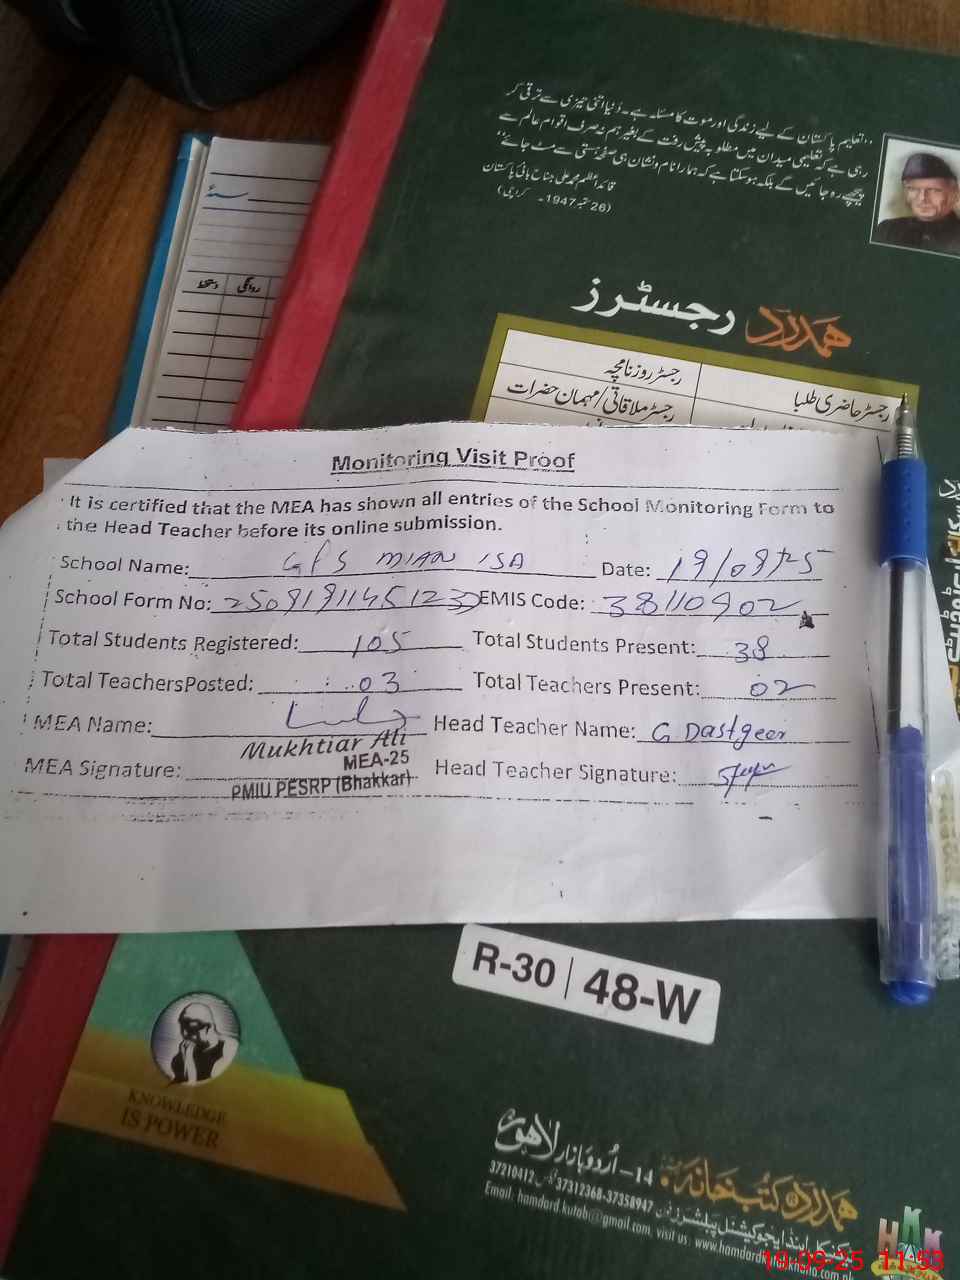 سنۂ
روانگی دستخط
"تعلیم پاکستان کے لیے زندگی اور موت کا مسئلہ ہے۔ دُنیا اتنی تیزی سے ترقی کر
رہی ہے کہ تعلیمی میدان میں مطلوبہ پیش رفت کے بغیر ہم نہ صرف اقوام عالم سے
پیچھے رہ جائیں گے بلکہ ہو سکتا ہے کہ ہمارا نام و نشان ہی صفحہ ہستی سے مٹ جائے"
قائداعظم محمد علی جناح بانیٔ پاکستان
(26 ستمبر 1947ء۔ کراچی)
ہمدرد رجسٹرز
رجسٹر حاضری طلبا رجسٹر روزنامچہ
رجسٹر ملاقاتی/مہمان حضرات
Monitoring Visit Proof
It is certified that the MEA has shown all entries of the School Monitoring Form to
the Head Teacher before its online submission.
School Name: GPS MIAN ISA Date: 19/09/25
School Form No: EMIS Code: 38110902
Total Students Registered: 105 Total Students Present: 38
Total TeachersPosted: 03 Total Teachers Present: 02
MEA Name: Head Teacher Name: G Dastgeer
Mukhtiar Ali
MEA-25
MEA Signature: Head Teacher Signature:
PMIU PESRP (Bhakkar)
R-30 | 48-W
KNOWLEDGE
IS POWER
ہمدرد کتب خانہ 14- اُردو بازار لاہور
37210412 37312368-37358947
Email: hamdard kutab@gmail.com, visit us: www.hamdardkutabkhana.com
HAKK
19-09-25 11:53